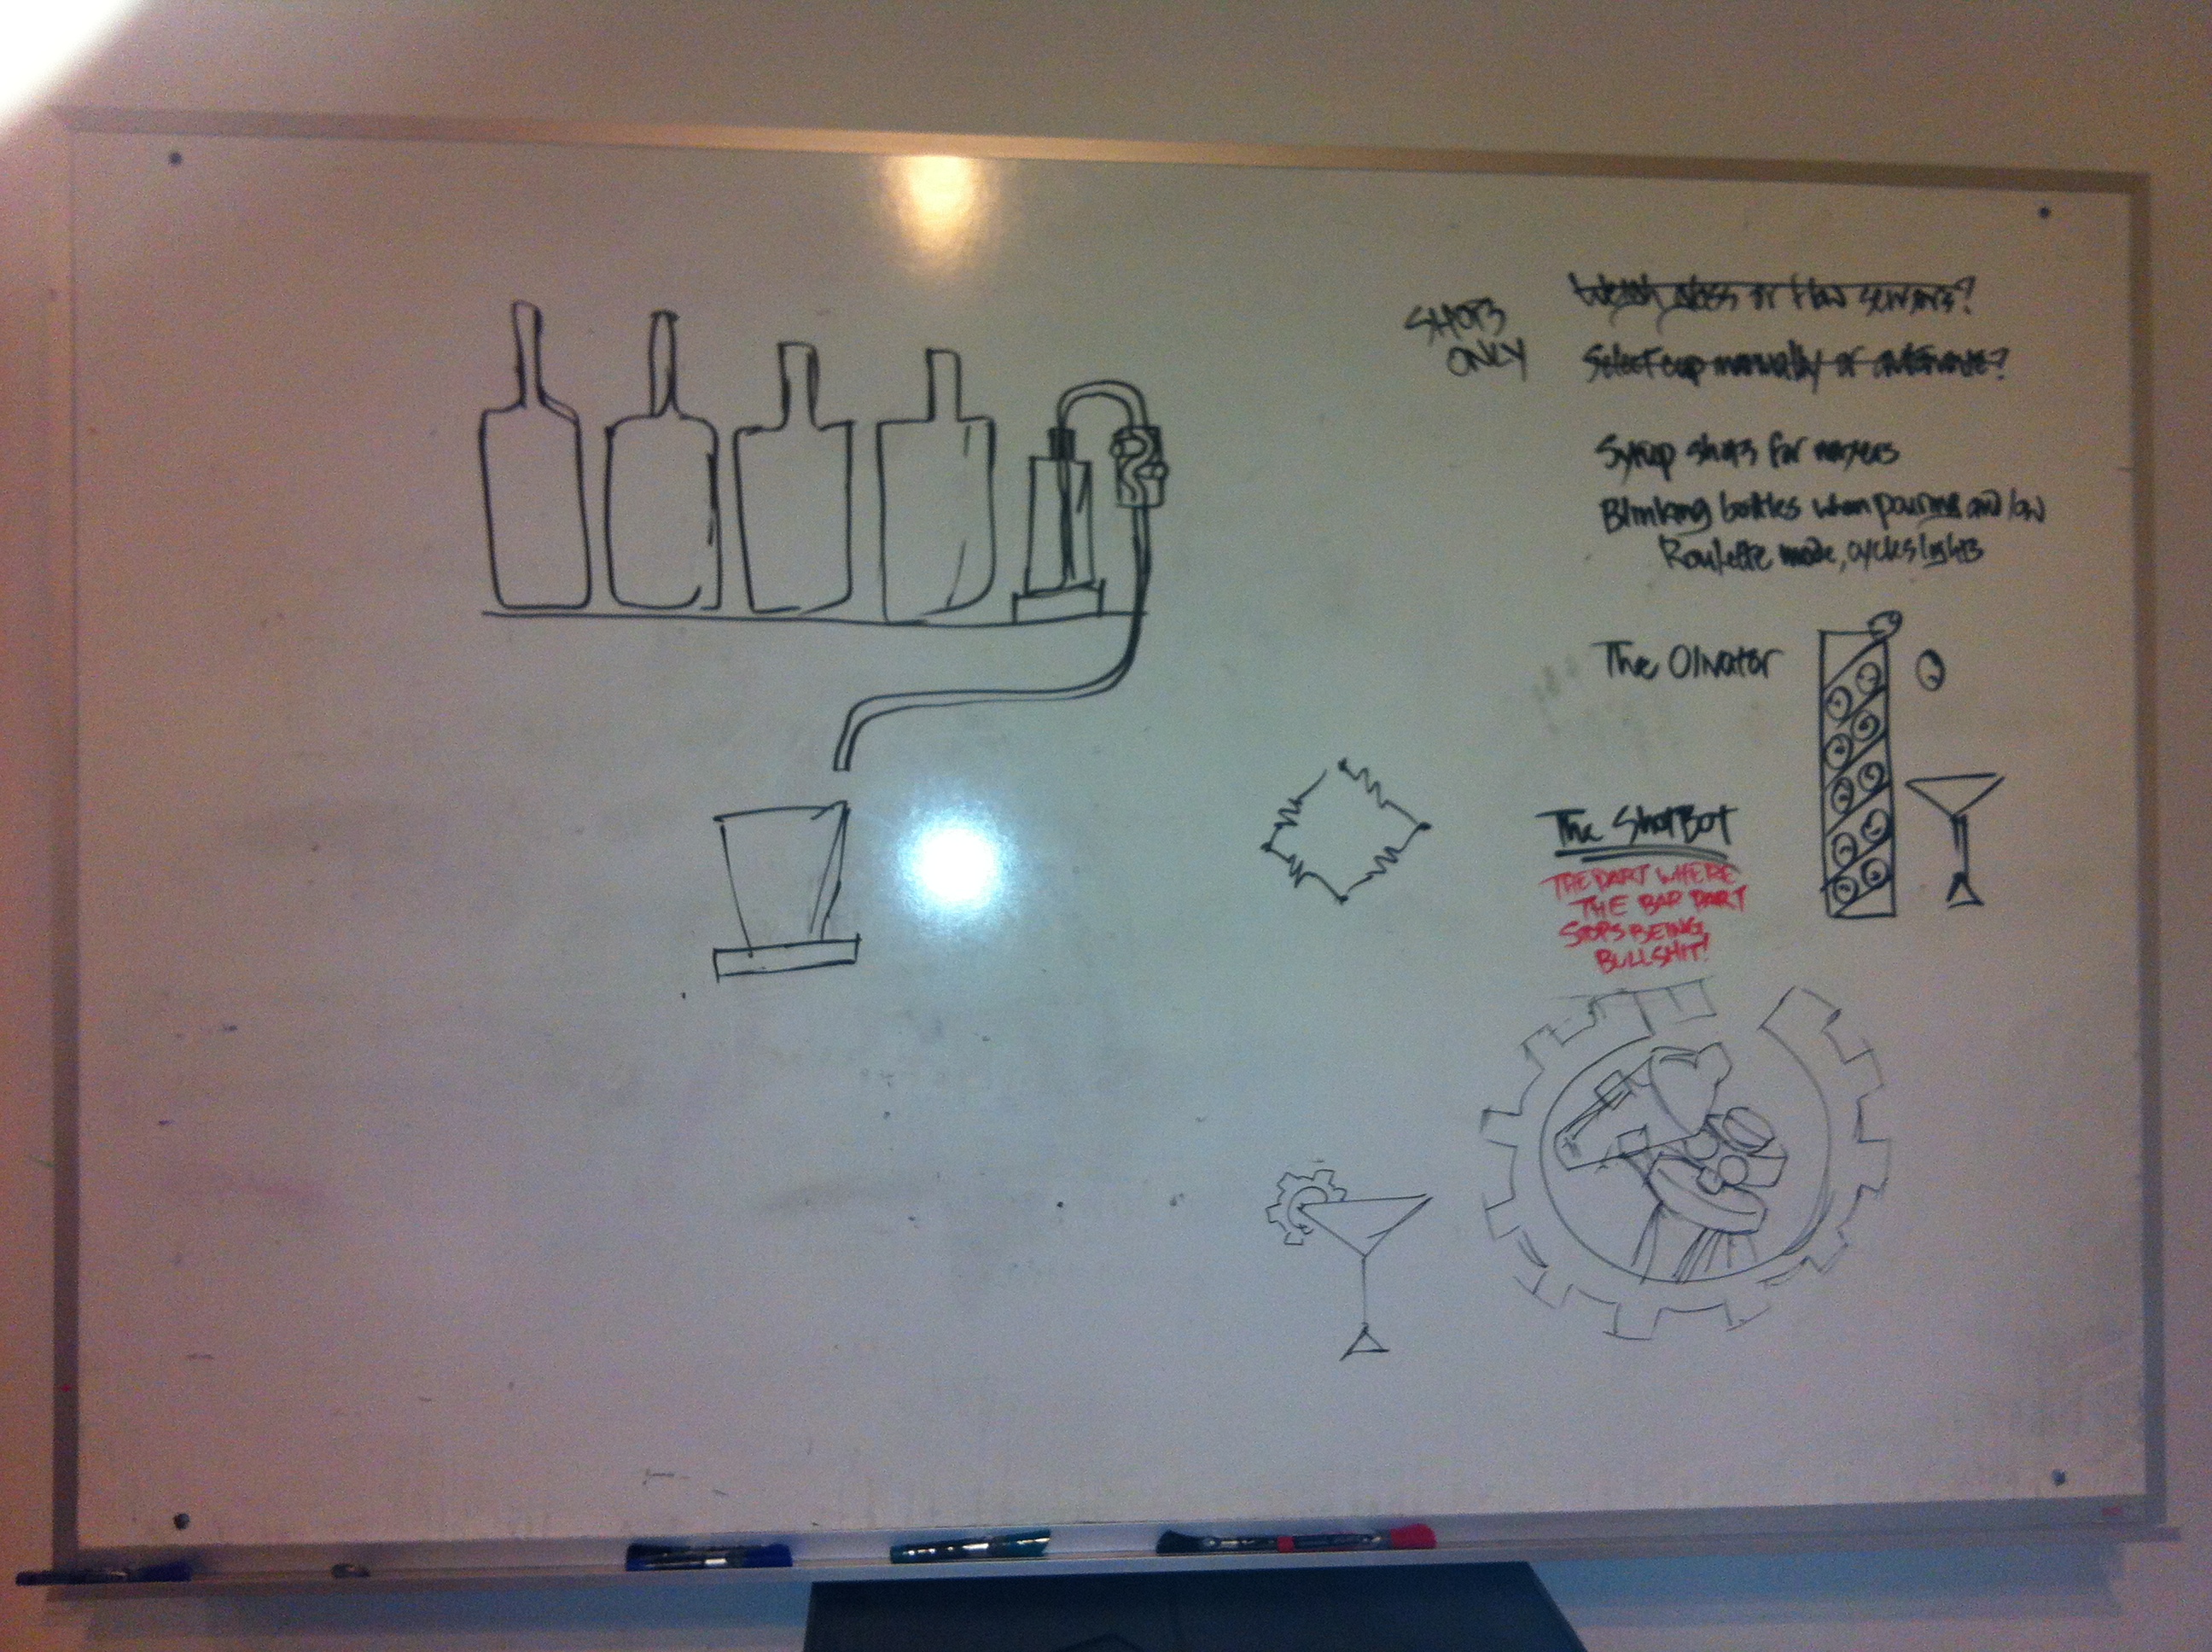 SHOTS
ONLY
Weigh glass or flow sensors?
Select cup manually or automate?
Syrup shots for mixers
Blinking bottles when pouring and low
Roulette mode, cycles lights
The Olivator
The ShotBot
THE PART WHERE
THE BAR PART
STOPS BEING
BULLSHIT!